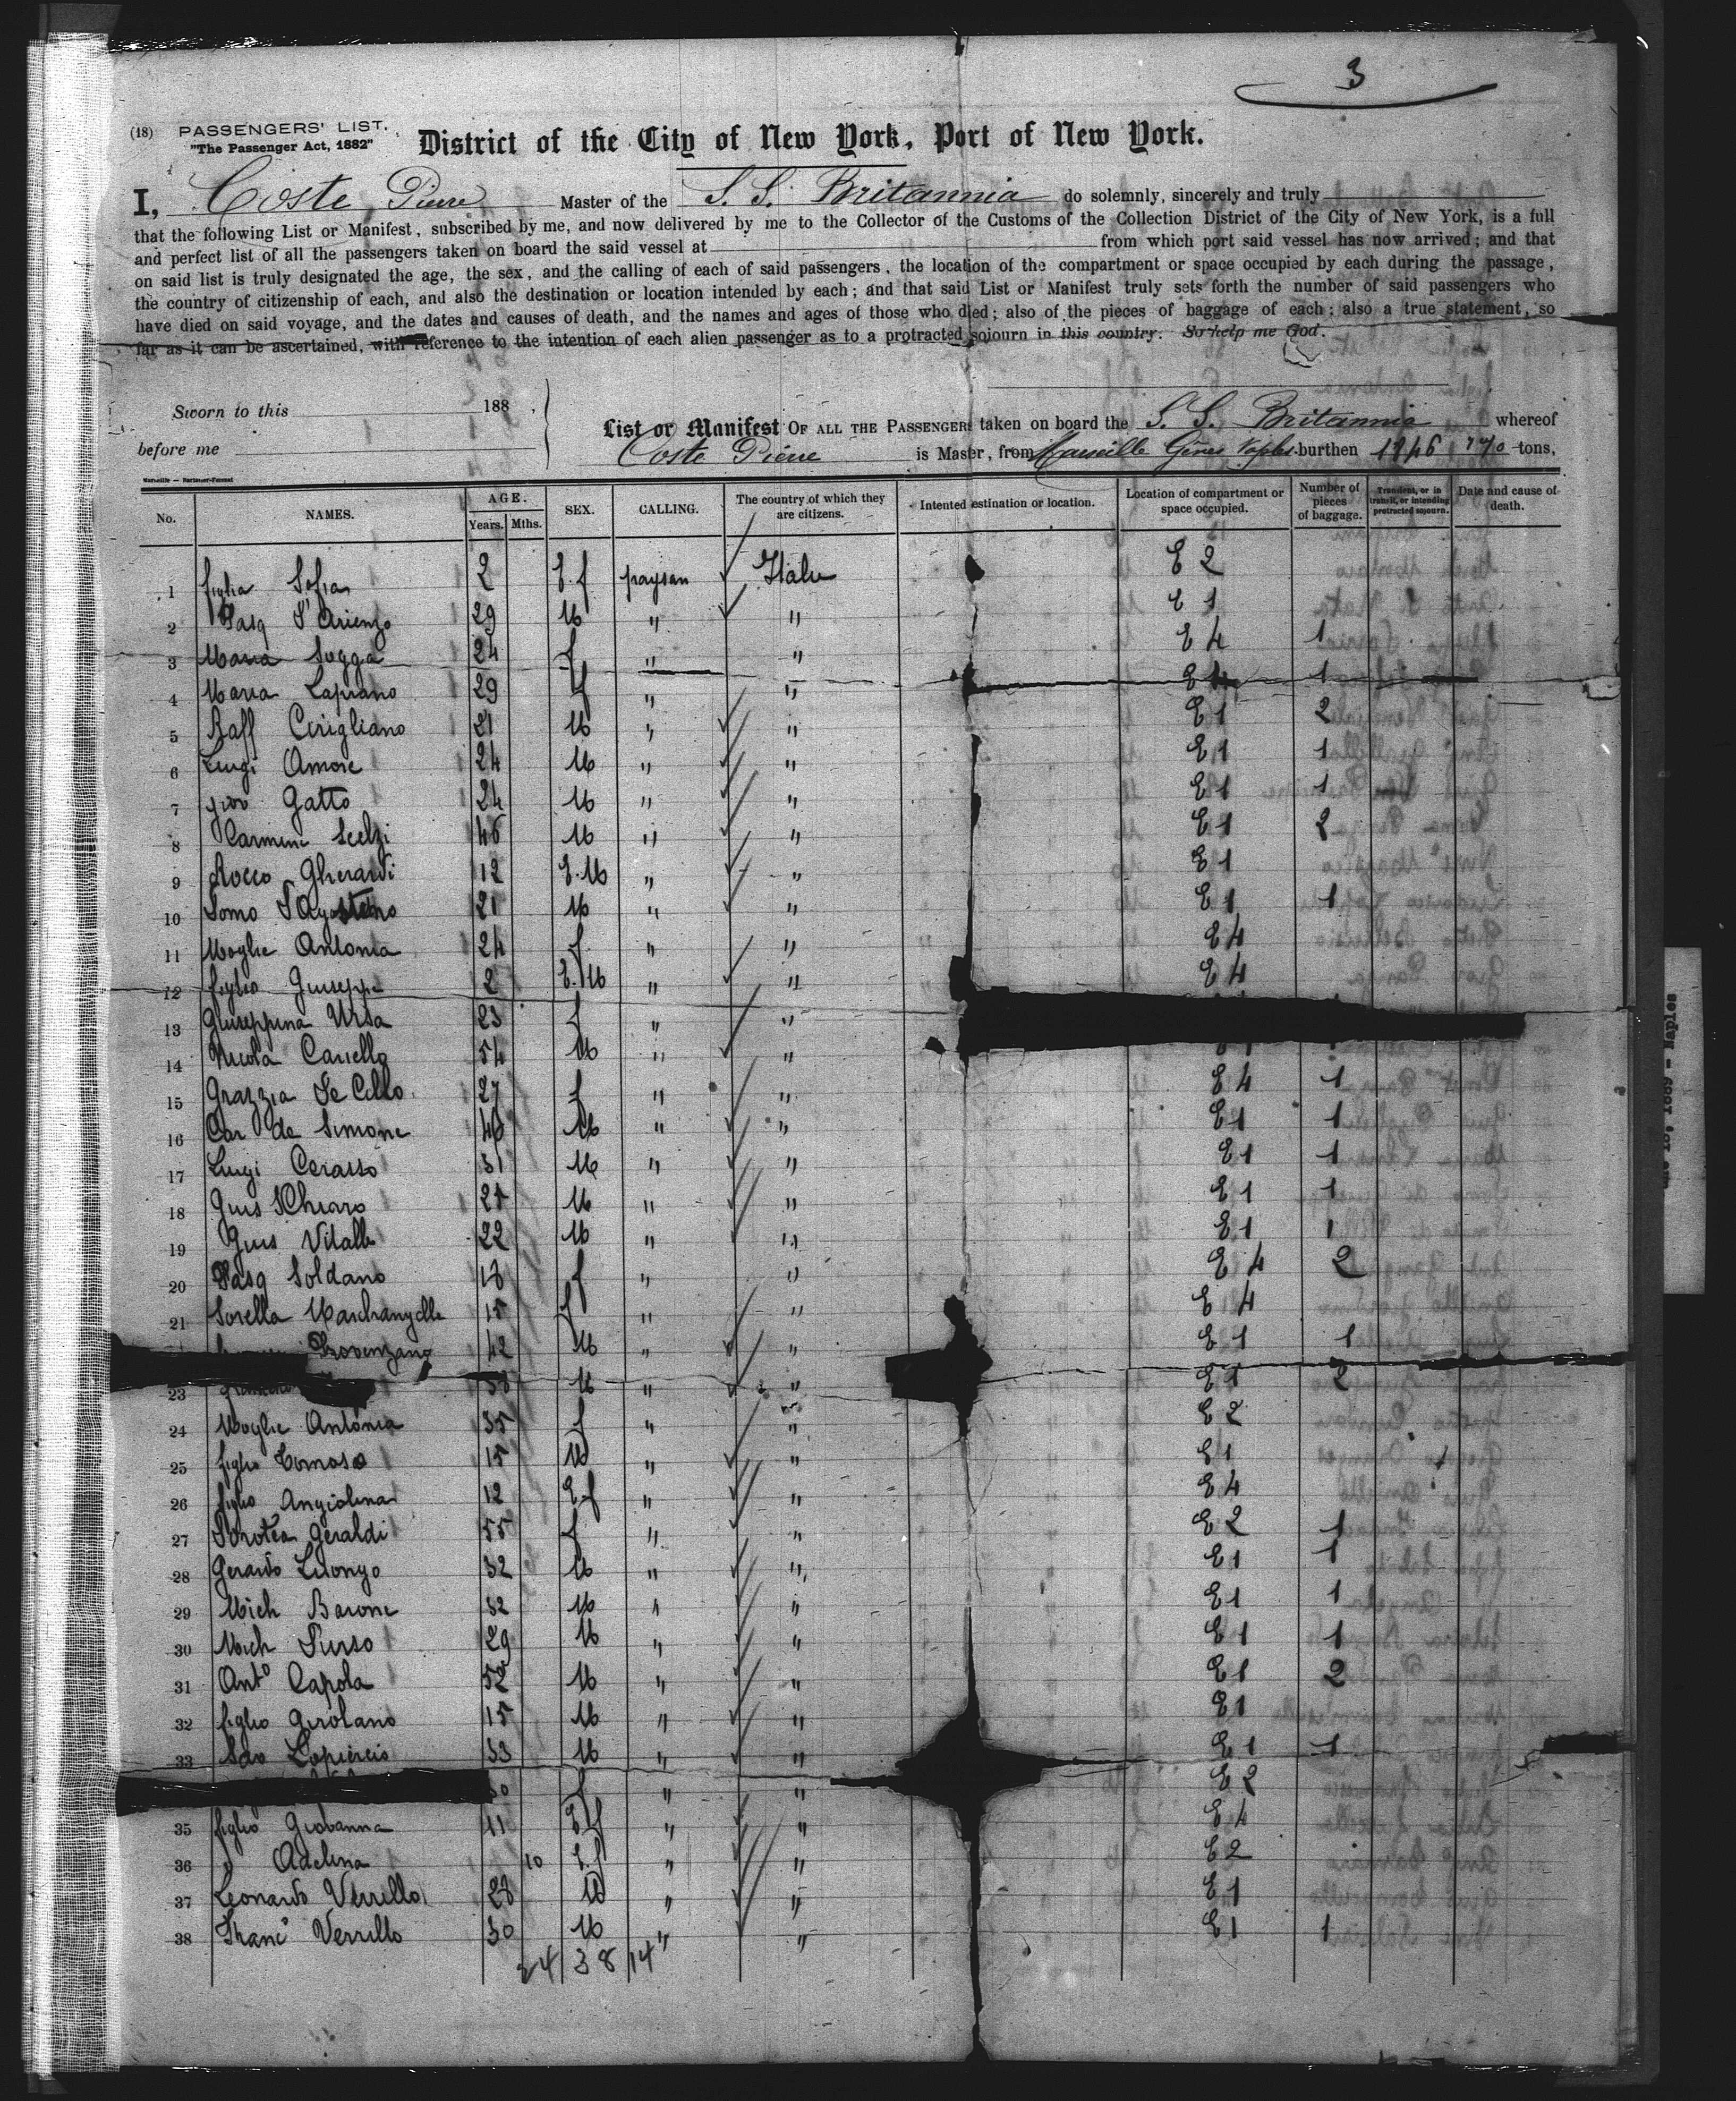 3
(18) PASSENGERS' LIST.
"The Passenger Act, 1882"
District of the City of New York, Port of New York.
I, Coste Pierre Master of the S. S. Britannia do solemnly, sincerely and truly
that the following List or Manifest, subscribed by me, and now delivered by me to the Collector of the Customs of the Collection District of the City of New York, is a full
and perfect list of all the passengers taken on board the said vessel at from which port said vessel has now arrived; and that
on said list is truly designated the age, the sex, and the calling of each of said passengers, the location of the compartment or space occupied by each during the passage,
the country of citizenship of each, and also the destination or location intended by each; and that said List or Manifest truly sets forth the number of said passengers who
have died on said voyage, and the dates and causes of death, and the names and ages of those who died; also of the pieces of baggage of each; also a true statement, so
far as it can be ascertained, with reference to the intention of each alien passenger as to a protracted sojourn in this country. So help me God.
Sworn to this 188 ,
before me
List or Manifest OF ALL THE PASSENGERS taken on board the S. S. Britannia whereof
Coste Pierre is Master, from Marseille Gênes Naples burthen tons,
No. NAMES. AGE. Years. Mths. SEX. CALLING. The country of which they are citizens. Intented estination or location. Location of compartment or space occupied. Number of pieces of baggage. Transient, or in transit, or intending protracted sojourn. Date and cause of death.
1 figlia Sofia 2 E.f paysan Italie E 2
2 Pasq D'Arienzo 29 M " " E 1
3 Maria Sogga 24 f " " E 4 1
4 Maria Lapiano 29 f " " E 4 1
5 Raff Cirigliano 21 M " " E 1 2
6 Luigi Amore 24 M " " E 1 1
7 Giov Gatto 24 M " " E 1 1
8 Carmine Scelzi 46 M " " E 1 2
9 Rocco Gherardi 12 E.M " " E 1
10 Domo D'Agostino 21 M " " E 1 1
11 Moglie Antonia 24 f " " E 4
12 figlio Giuseppe 2 E.M " " E 4
13 Giuseppina Ursa 23 f " "
14 Nicola Cariello 54 M " "
15 Grazzia De Cillo 27 f " " E 4 1
16 Car de Simone M " " E 1 1
17 Luigi Cerasso 31 M " " E 1 1
18 Gius DChiaro 21 M " " E 1 1
19 Gius Vitalle 22 M " " E 1 1
20 Pasq Soldano 18 f " " E 4 2
21 Sorella Marchangelle 15 f " " E 4
Provenzano 42 M " " E 1 1
23 38 M " " E 1 2
24 Moglie Antonia 35 f " " E 2
25 figlio Tomaso 15 M " " E 1
26 figlio Angiolina 12 E f " " E 4
27 Dorotea Geraldi 55 f " " E 2 1
28 Gerardo Luongo 32 M " " E 1 1
29 Mich Barone 32 M " " E 1 1
30 Mich Durso 29 M " " E 1 1
31 Anto Capola 52 M " " E 1 2
32 figlio Girolano 15 M " " E 1
33 Sav 33 M " " E 1 1
30 f " " E 2
35 figlio Giovanna 11 E f " " E 4
36 " Adelina 10 E.f " " E 2
37 Leonardo Verrillo 28 M " " E 1
38 Franco Verrillo 30 M " " E 1 1
24 38 14
1889 - Naples